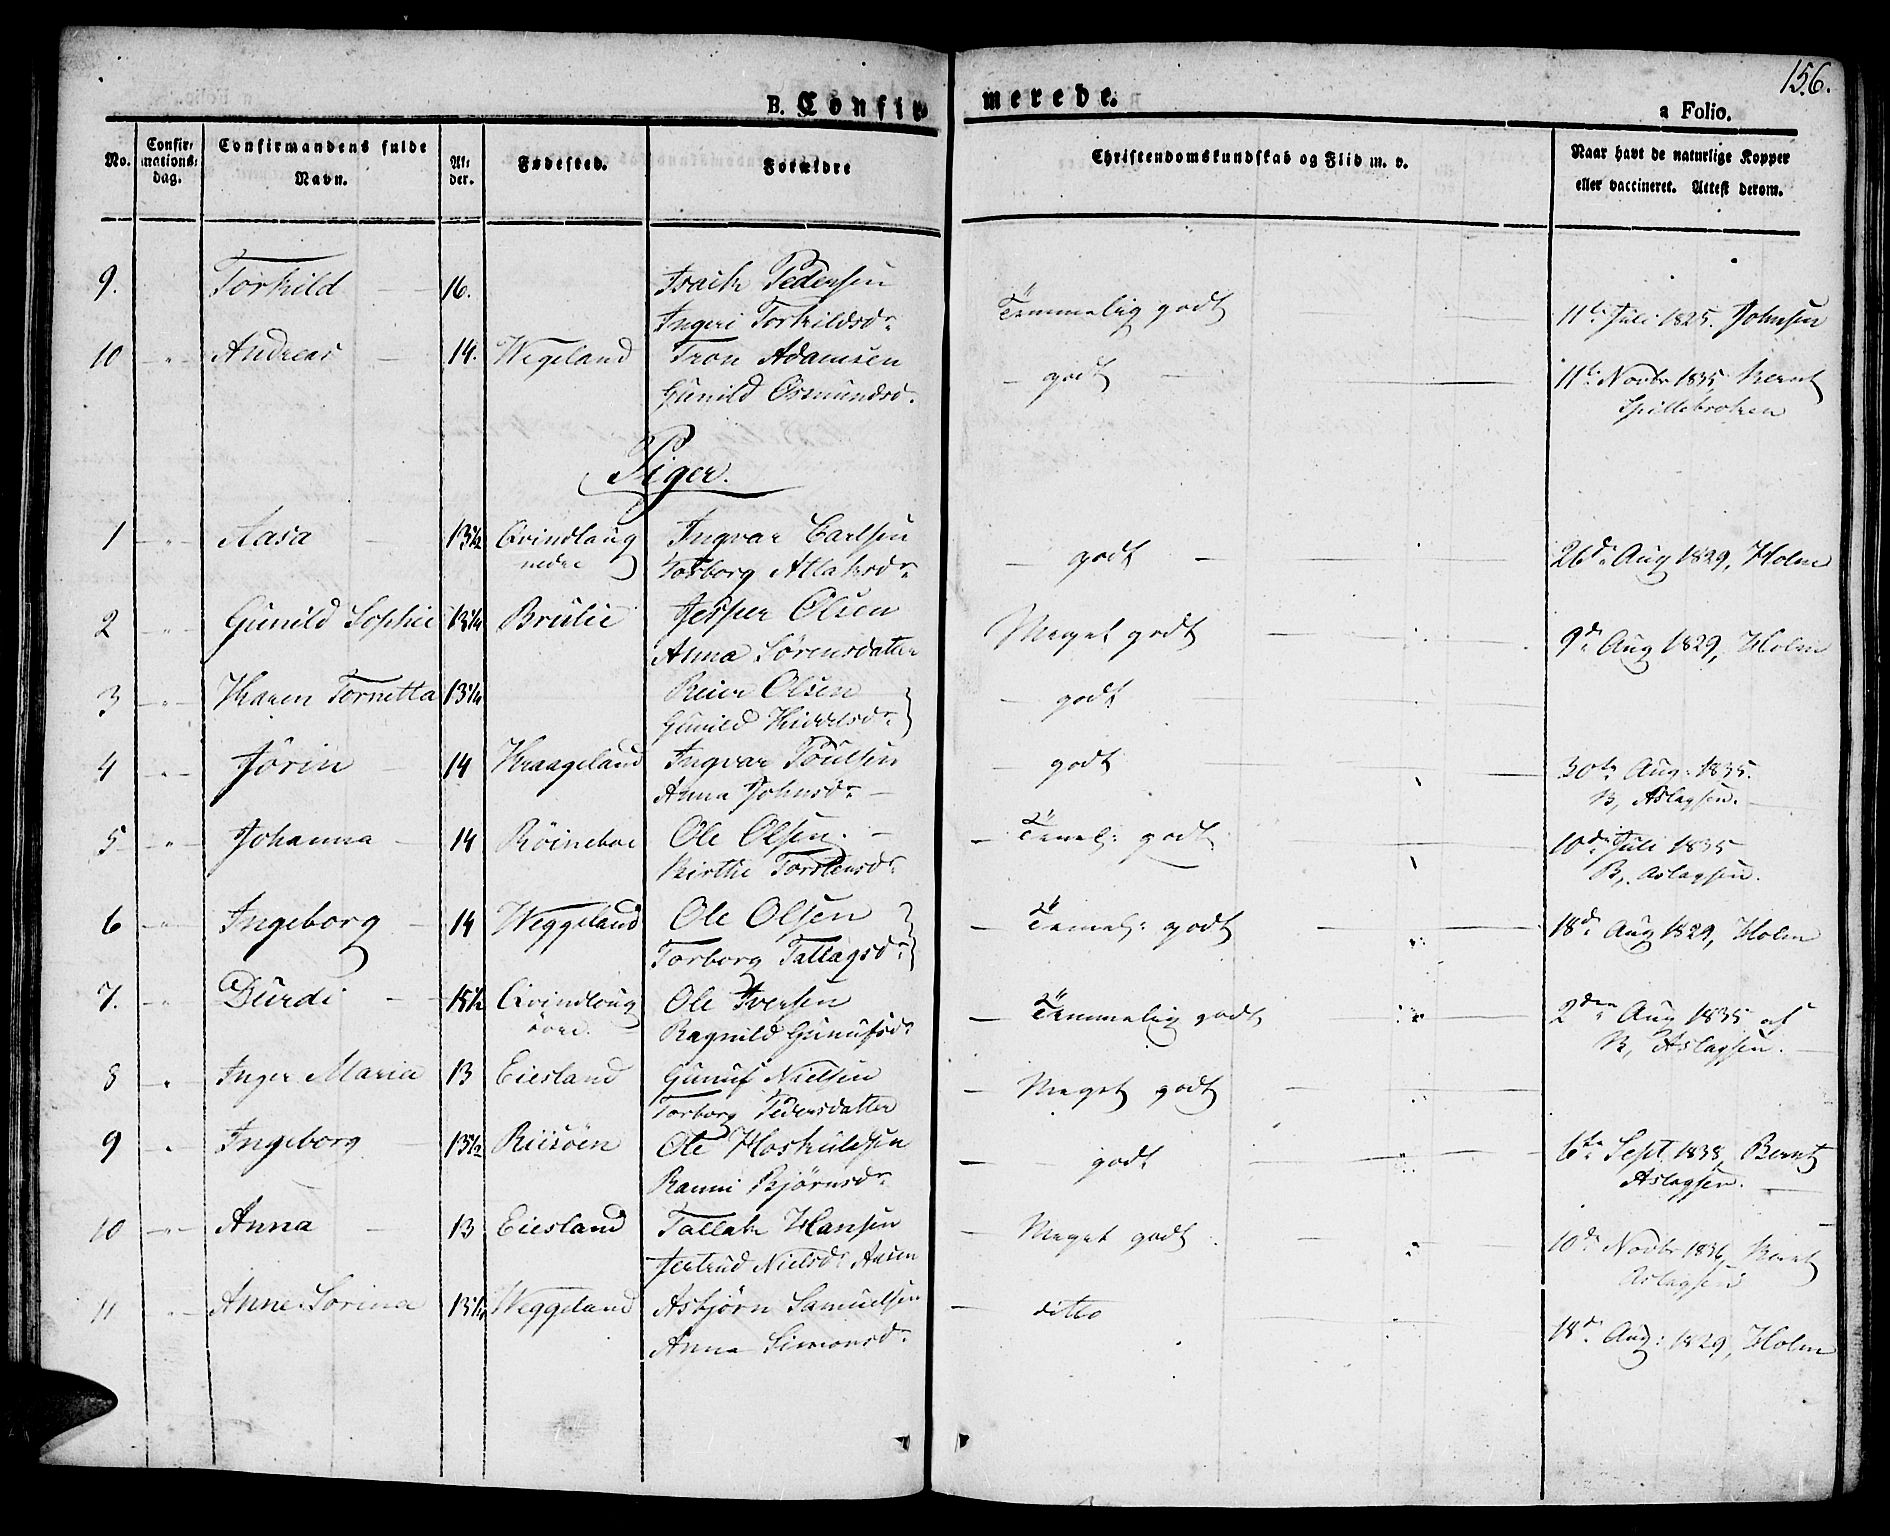 156.
B. Confirmerede.
a Folio.
No. Confirmations-dag. Confirmandens fulde Navn. Alder. Fødested. Forældre Christendomskundskab og Flid m. v. Naar havt de naturlige Kopper eller vaccineret. Attest derom.
9. Torkild 16. Isack Pedersen Temmelig godt 11te Juli 1825. Johnsen
Ingeri Torkildsdr.
10 Andreas 14. Wegeland Tron Adamsen godt 11te Novbr 1835 Bernt
Gunild Osmundsd. Spillebroken
Piger.
1 Aasa 13½ Qvindlaug Ingvar Carlsen godt 26de Aug 1829, Holm
nedre Torborg Atlaksdr.
2 Gunild Sophie 13¼ Brulie Jesper Olsen Meget godt 9de Aug 1829, Holm
Anna Sørensdatter
3 Karen Tornetta 13¼ Reier Olsen godt
Gunild Kittelsdr.
4 Jørin 14 Kraageland Ingvar Poulsen godt 30te Aug: 1835.
Anna Johnsdr. B, Aslagsen.
5 Johanna 14 Röineboe Ole Olsen. Temel: godt 10de Juli 1835
Birthe Torstensdr. B, Aslagsen.
6 Ingeborg 14 Weggeland Ole Olsen Temel: godt 18de Aug 1829, Holm
Torborg Tallagsdr.
7. Durdi 15½ Qvindloug Ole Iversen Temmelig godt 2den Aug 1835 af
övre. Ragnild Gunufsdr B, Aslagsen.
8 Inger Maria 13 Eiesland Gunuf Nielsen Meget godt
Torborg Pedersdatter
9 Ingeborg 13½ Riisöen Ole Hoskuldsen godt 6te Sept 1838, Bernt
Ranni Bjørnsdr. Aslagsen.
10 Anna 13 Eiesland Tallak Hansen Meget godt 10de Novbr 1836, Bernt
Jertrud Nielsdr Aslagsen
11 Anne Sorina 13¼ Weggeland Asbjørn Samuelsen ditto 18de Aug: 1829, Holm
Anna Simonsdr.